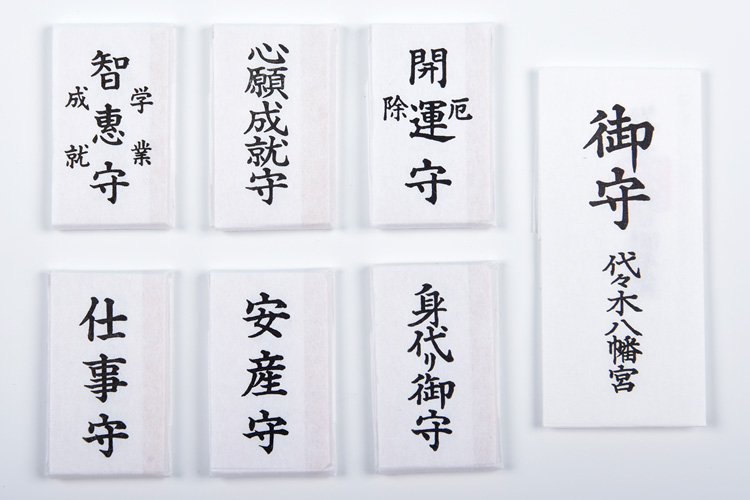 智惠守
学業
成就
心願成就守
開運守
厄
除
御守
代々木八幡宮
仕事守
安産守
身代り御守